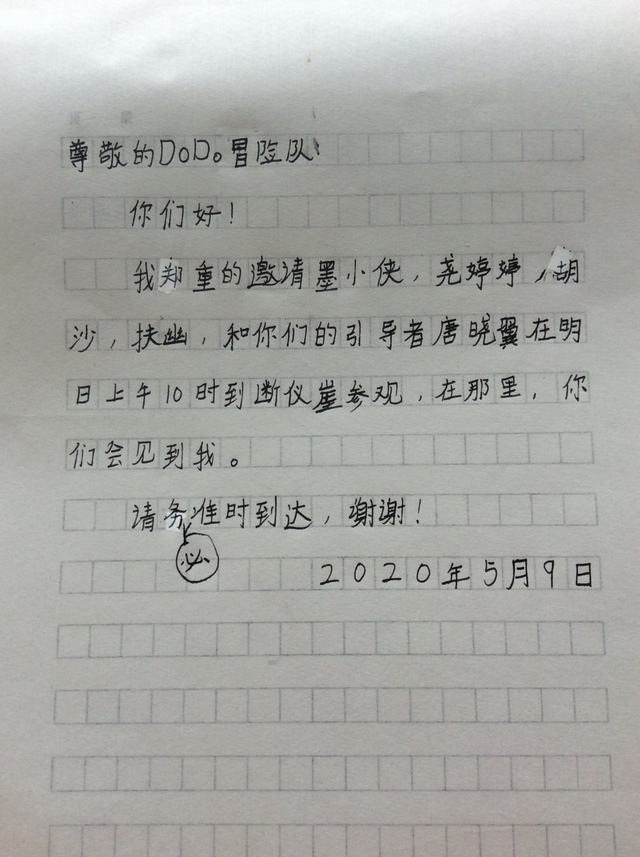 尊敬的DoDo冒险队:
你们好!
我郑重的邀请墨小侠,尧婷婷,胡
沙,扶幽,和你们的引导者唐晓翼在明
日上午10时到断仪崖参观,在那里,你
们会见到我。
请务必准时到达,谢谢!
2020年5月9日